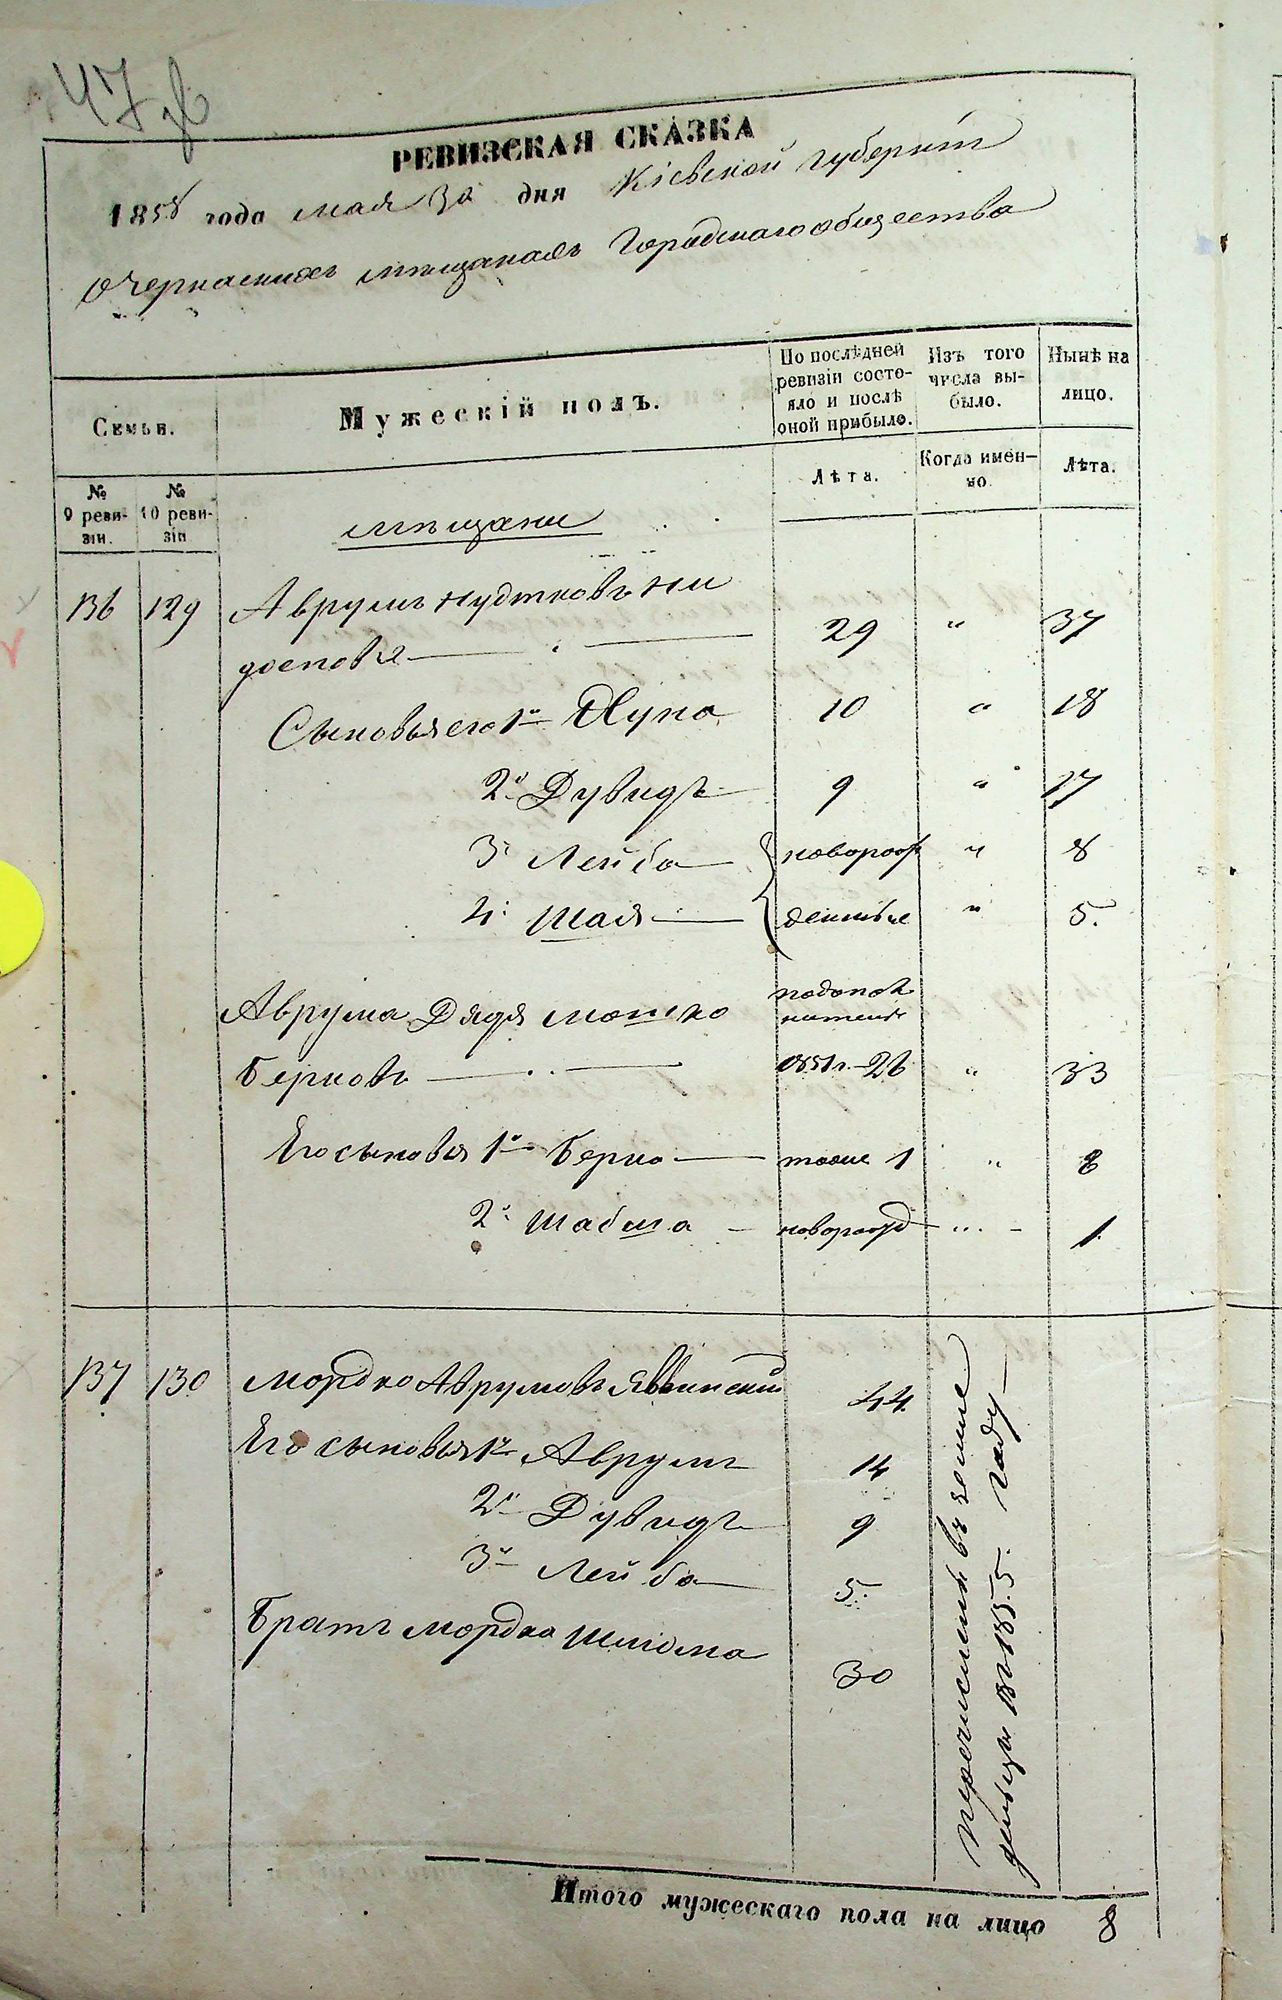 47
РЕВИЗСКАЯ СКАЗКА
1858 года мая 30 дня Кіевской губерніи
О Черкаскихъ мѣщанахъ Городскаго общества
Семьи.
Мужескій полъ.
По послѣдней ревизіи состо-
яло и послѣ
оной прибыло.
Изъ того
числа вы-
было.
Нынѣ на
лицо.
Лѣта.
Когда имен-
но.
Лѣта.
№
9 реви-
зіи.
№
10 реви-
зіи
мѣщани
136 129 Аврумъ
29 " 37
Сыновья его 1й Нуна 10 " 18
2й Дувидъ 9 " 17
3й Лейба новорож " 8
4й Шая денные " 5.
Аврума Дядя Мошко
Берковъ 1851 г. 26 " 33
Его сыновья 1й Берко тоже 1 " 8
2й Шабша новорожд " 1
137 130 Мордко Аврумовъ 44
Его сыновья 1й Аврумъ 14
2й Дувидъ 9
3й Лейба 5.
Братъ Мордка Шлiома 30
перечислены въ земле
дельцы въ 1855. году
Итого мужескаго пола на лицо 8